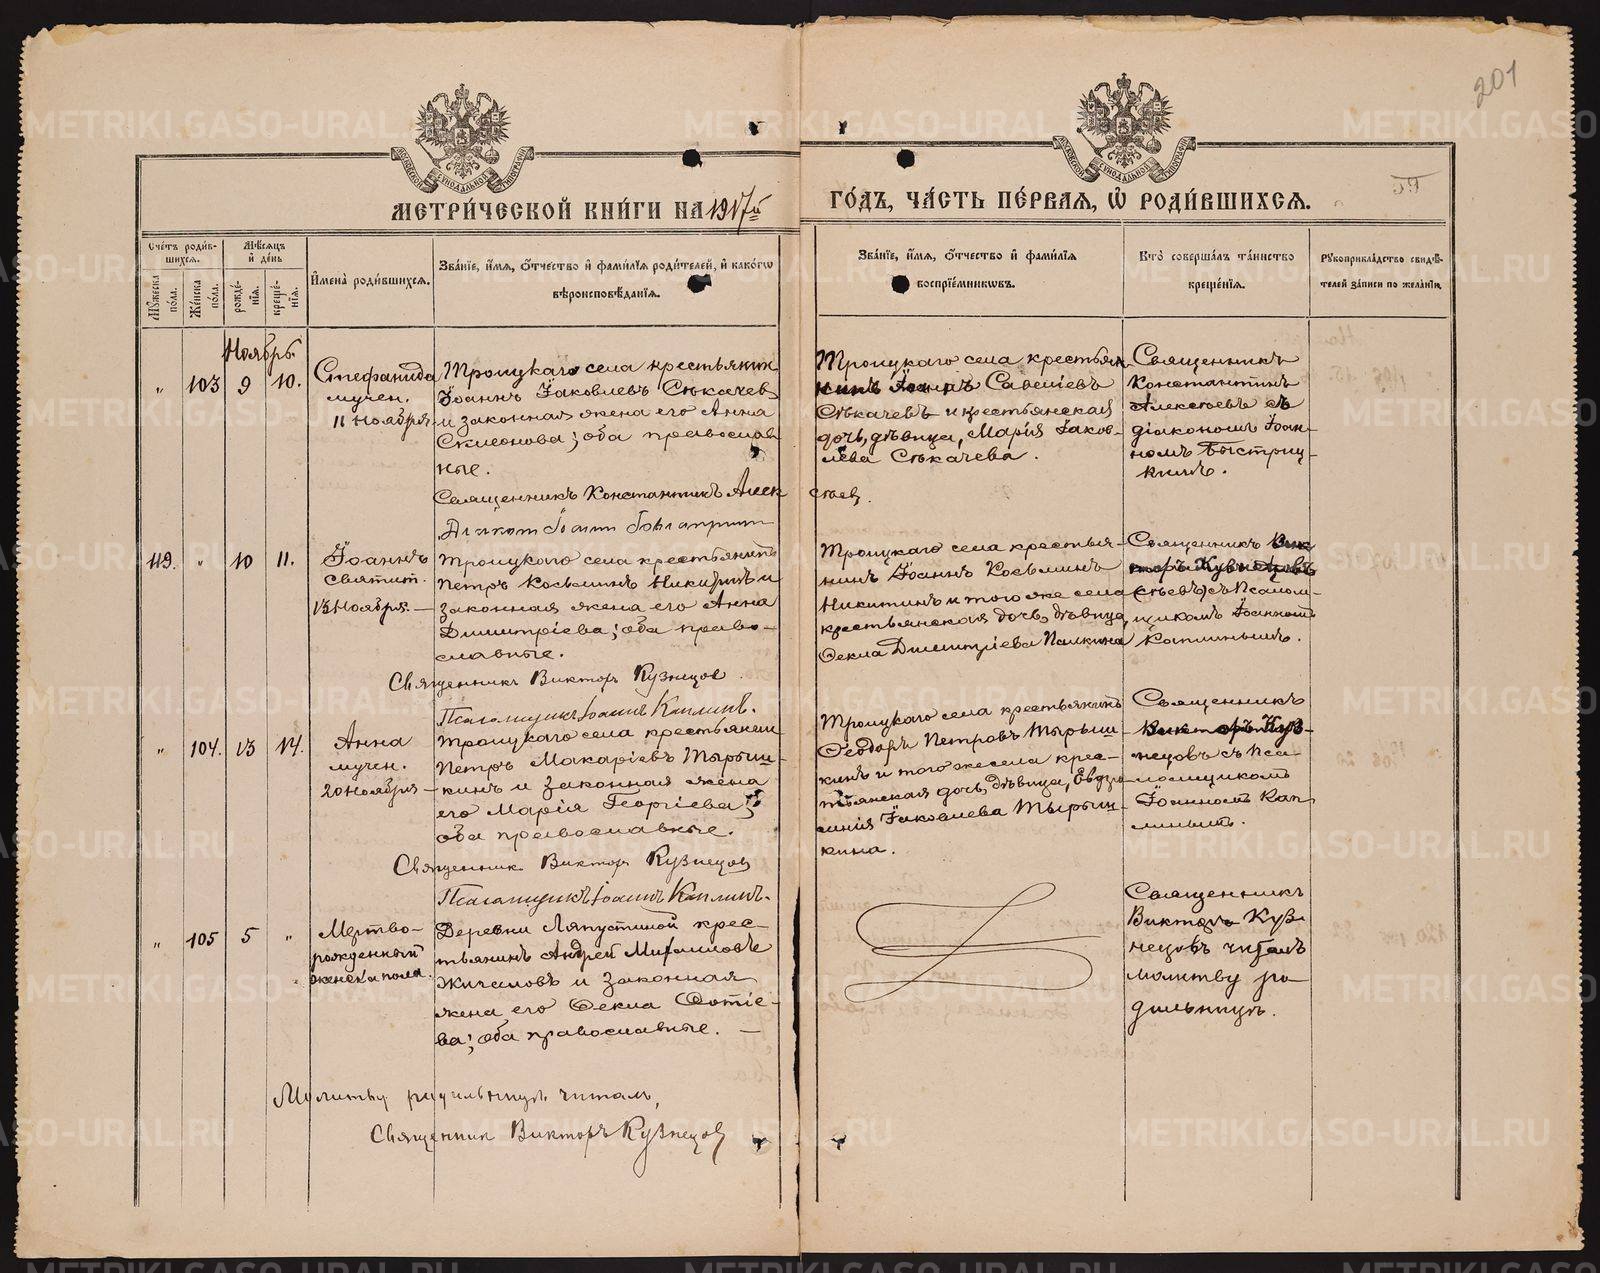 201
МЕТРИ́ЧЕСКОЙ КНИ́ГИ НА 1917й ГО́ДЪ, ЧА́СТЬ ПЕ́РВАЯ, Ѡ҆ РОДИ́ВШИХСЯ.
Сче́тъ роди́вшихся.
Мѣ́сяцъ и҆ де́нь
Мꙋ́жеска по́ла.
Же́нска по́ла.
рожде́нїя.
креще́нїя.
И҆мена̀ роди́вшихся.
Зва́нїе, и҆́мя, ѻ҆́тчество и҆ фами́лїя роди́телей, и҆ како́гѡ
вѣроисповѣ́данїя.
Зва́нїе, и҆́мя, ѻ҆́тчество и҆ фами́лїя
воспрїе́мникѡвъ.
Кто̀ соверша́лъ та́инство
креще́нїя.
Рꙋкоприкла́дство свидѣ́-
телей за́писи по жела́нїю.
Ноябрь.
" 103 9 10.
Стефанида
мучен.
11 Ноября
Троицкаго села крестьянин
Іоаннъ Іаковлевъ Сѣкачевъ
и законная жена его Анна
Симеонова; оба православ
ные.
Священникъ Константинъ Алек
сѣев.
Троицкаго села крестьян
нинъ Іоаннъ Савеліевъ
Сѣкачевъ и крестьянская
дочь, дѣвица, Марія Іаков-
лева Сѣкачева.
Священникъ
Константинъ
Алексѣевъ съ
діакономъ Іоан-
номъ Быстриц-
кимъ.
119. " 10 11.
Іоаннъ
святит.
13 Ноября. —
Троицкаго села крестьянинъ
Петръ Косьминъ Никитинъ и
законная жена его Анна
Димитріева; оба право-
славные.
Священникъ Викторъ Кузнецов
Псаломщикъ Іоаннъ Каплинъ.
Троицкаго села крестья-
нинъ Іоаннъ Косьминъ
Никитинъ и того же села
крестьянская дочь, дѣвица,
Ѳекла Димитріева Палкина
Священникъ
съ Псалом-
щикомъ Іоанномъ
Каплинымъ.
" 104. 13 14.
Анна
мучен.
20 Ноября —
Троицкаго села крестьянин
Петръ Макаріевъ Тырыш-
кинъ и законная жена
его Марія Георгіева;
оба православные.
Священник Викторъ Кузнецов
Псаломщикъ Іоаннъ Каплинъ.
Троицкаго села крестьянинъ
Ѳеодоръ Петровъ Тырыш-
кинъ и того же села крес-
тьянская дочь, дѣвица,
Іаковлева Тырыш-
кина.
Священникъ
Викторъ Куз-
нецовъ съ Пса-
ломщикомъ
Іоанномъ Кап-
линымъ.
" 105 5 "
Мертво-
рожденный
женска пола.
Деревни Ляпустиной крес-
тьянинъ Андрей Михаиловъ
и законная
жена его Ѳекла Фотіе-
ва; оба православные. —
Священникъ
Викторъ Куз-
нецовъ читалъ
молитву ро-
дильницѣ.
Молитву родильницѣ читалъ,
Священник Викторъ Кузнецов
METRIKI.GASO-URAL.RU